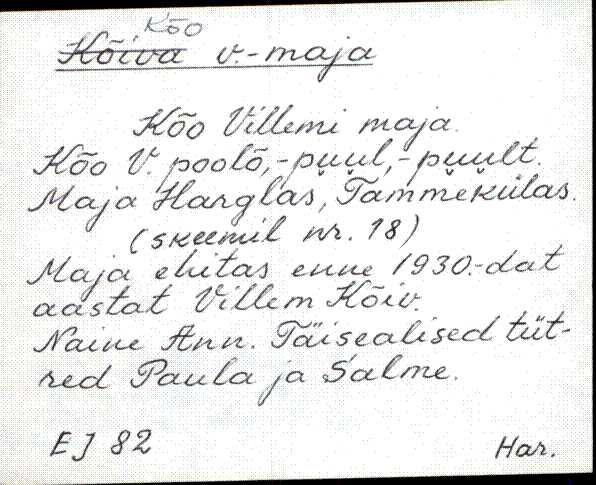 Kõo
Kõiva v.-maja
Kõo Villemi maja.
Kõo V. poolõ,-puul,-puult.
Maja Harglas, Tammekülas.
(skeemil nr. 18)
Maja ehitas enne 1930.-dat
aastat Villem Kõiv.
Naine Ann. Täisealised tüt-
red Paula ja Salme.
EJ 82
Har.